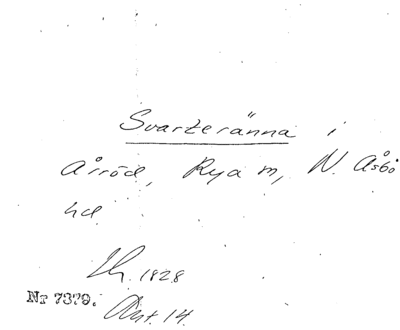 Svarteränna i
Årröd, Rya m, N. Åsbo
hd
Th. 1828
Nr 7379. Ant. 14